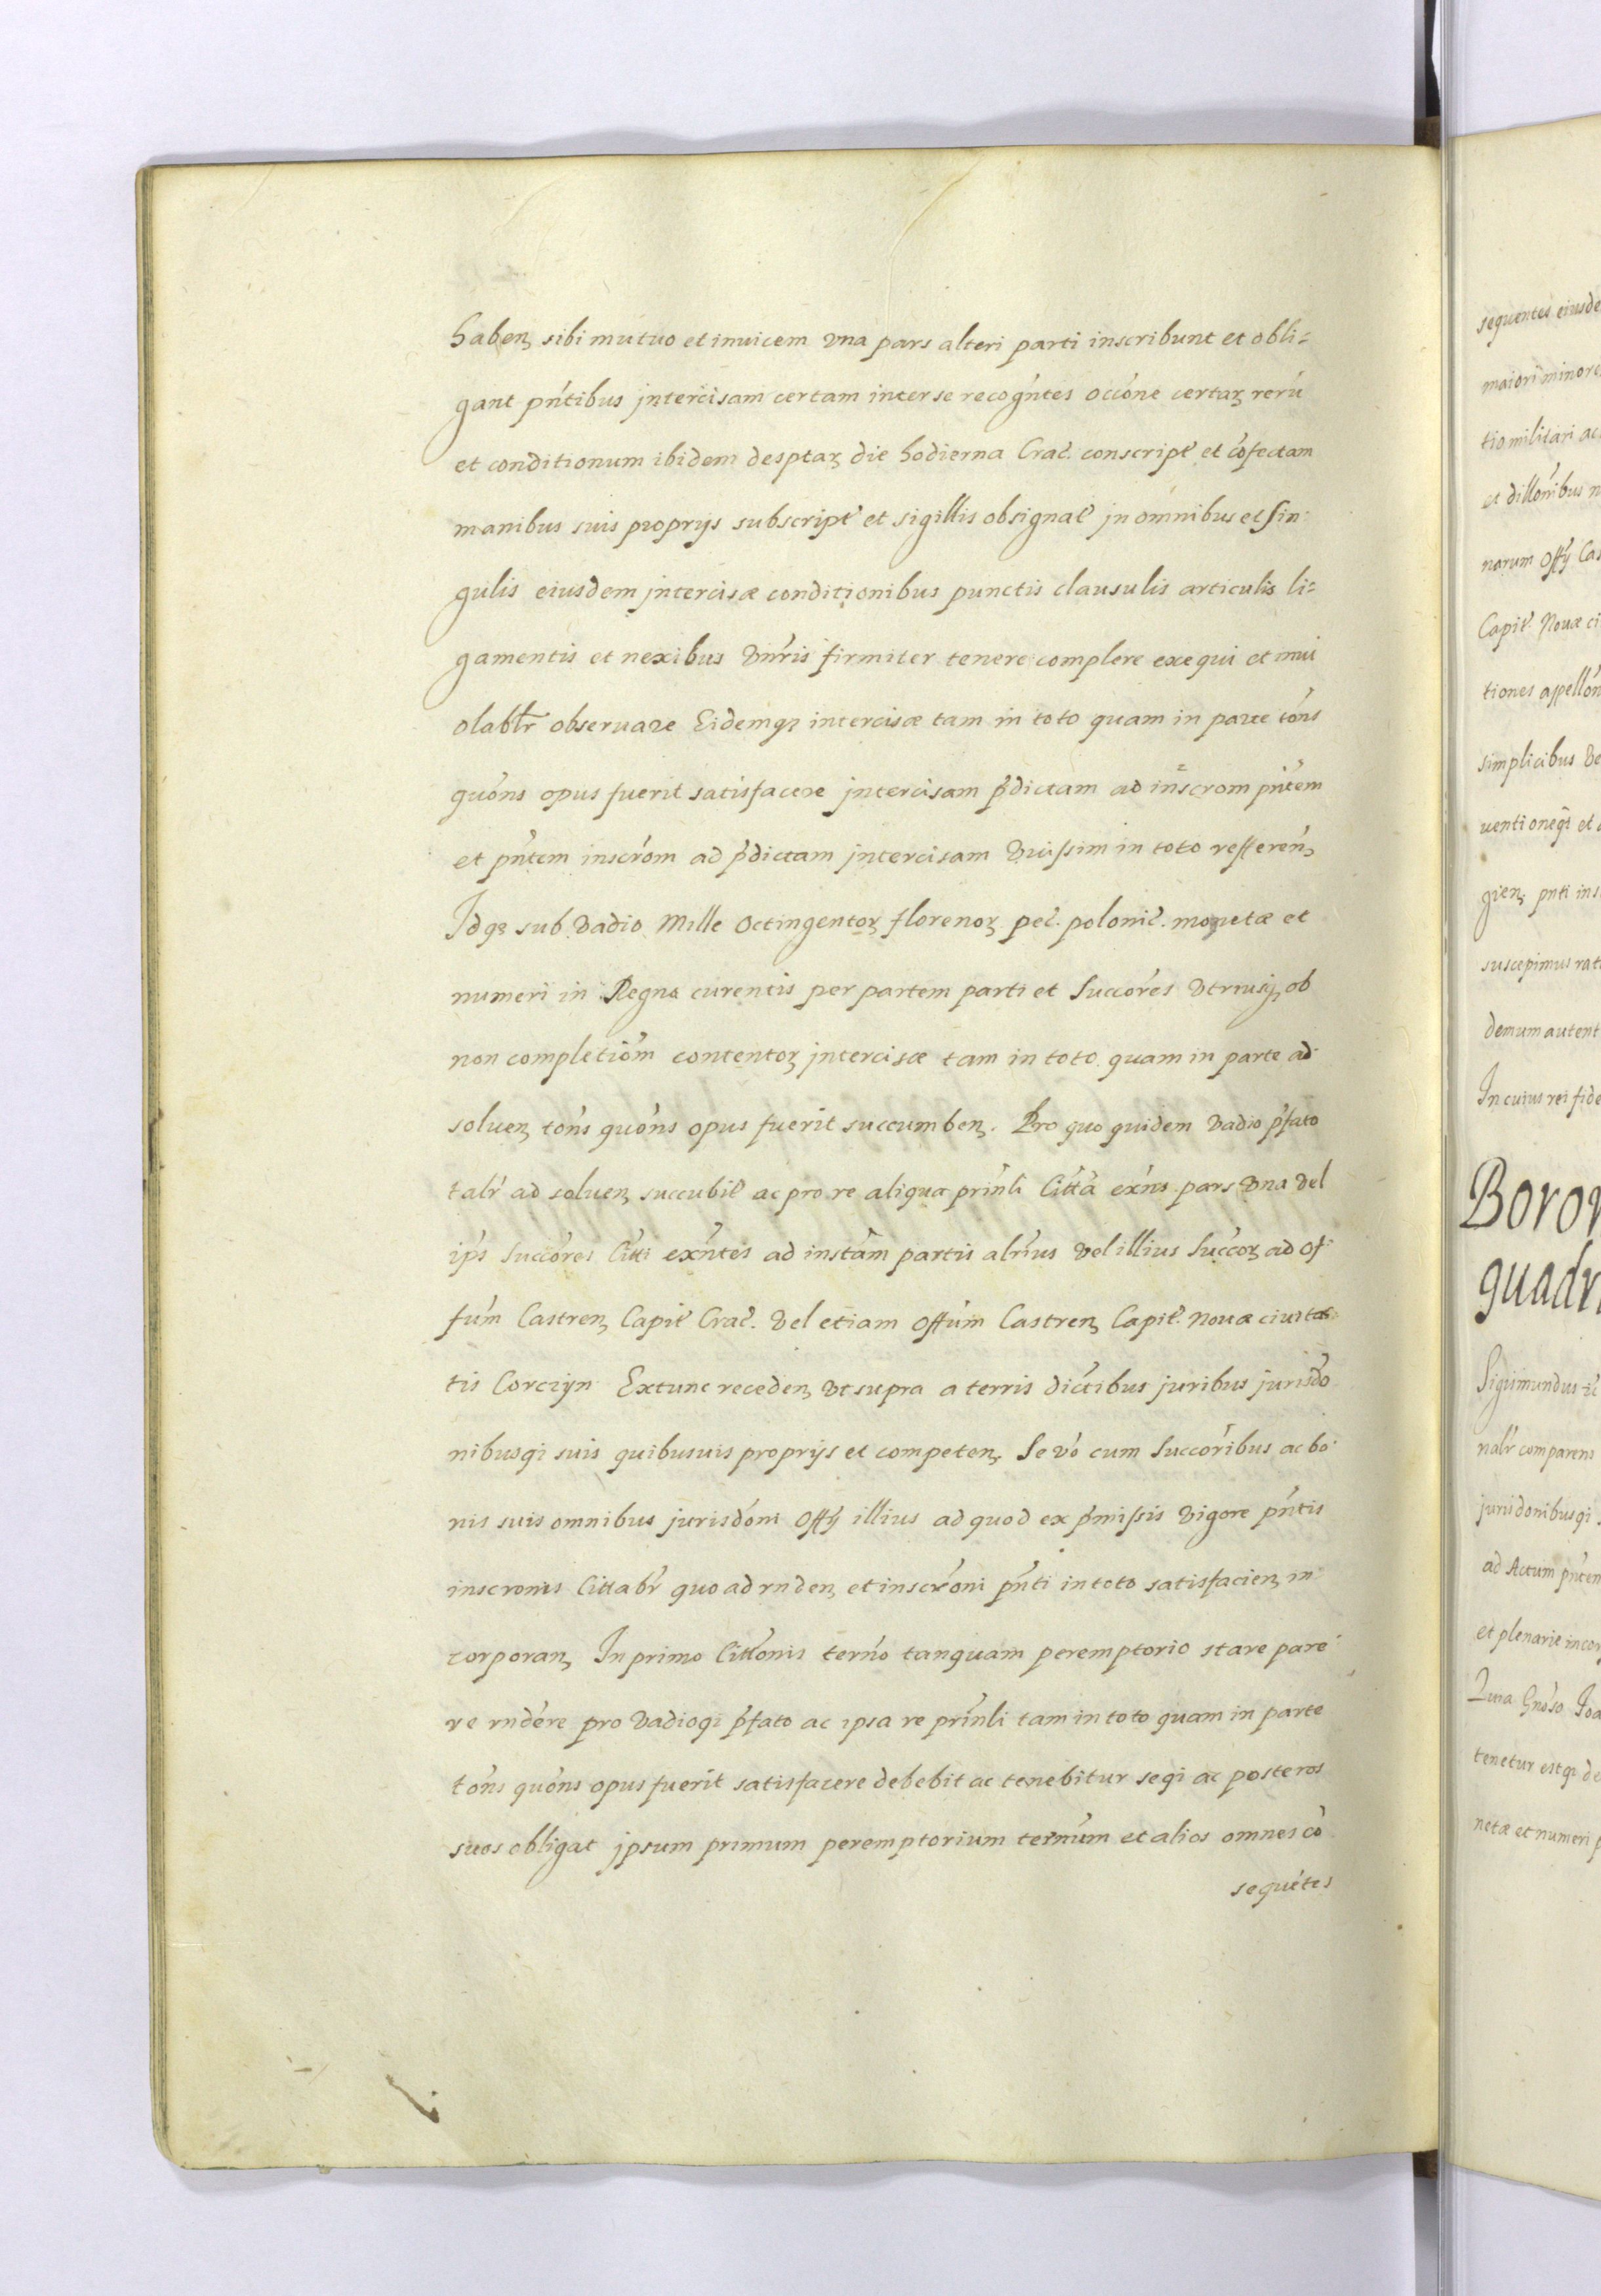 habenꝫ sibi mutuo et inuicem vna pars alteri parti inscribunt et obli=
gant pn̄tibus jntercisam certam inter se recogn̄tes occōne certaꝝ rerū
et conditionum ibidem desptaꝝ die hodierna Crac̄. conscript̄ et cōfectam
manibus suis proprijs subscript̄ et sigillis obsignat̄ jn omnibus et sin-
gulis eiusdem jntercisæ conditionibus punctis clausulis articulis li=
gamentis et nexibus vnr̄is firmiter tenere complere exequi et inui
olabl̄r obseruare Eidemqꝫ intercisæ tam in toto quam in parte tōns
quōns opus fuerit satisfacere jntercisam p̄dictam ad inscrom pn̄tem
et pn̄tem inscrōm ad p̄dictam jntercisam vicissim in toto refferen̄ꝫ
Jdqꝫ sub vadio Mille octingentoꝝ florenoꝝ pec̄. polonic̄. monetæ et
numeri in Regno curentis per partem parti et succōres vtriusqꝫ ob
non completiōm contentoꝝ jntercisæ tam in toto quam in parte ad
soluenꝫ tōns quōns opus fuerit succumbenꝫ. Pro quo quidem vadio p̄fato
talr̄ ad soluenꝫ succubit̄ ac pro re aliqua prin̄li Citt̄a exn̄s pars vna vel
ip̄s succōres Citt̄i exn̄tes ad instām partis alr̄ius vel illius succoꝝ ad of-
fūm Castrenꝫ Capit̄ Crac̄. vel etiam offūm Castrenꝫ Capit̄. Nouæ ciuita-
tis Corciyn Extunc recedenꝫ vt supra a terris dictībus juribus jurisdō
nibusqi suis quibusuis proprijs et competenꝫ. Se vō cum succōribus ac bo-
nis suis omnibus jurisdōni offy illius ad quod ex p̄missis vigore pn̄tis
inscronis Cittabr̄ quo ad rndenꝫ et inscrōni pn̄ti in toto satisfacienꝫ in-
corporanꝫ In primo Cittōnis tern̄o tanquam peremptorio stare pare-
re rndēre pro vadioqi p̄fato ac ipsa re prin̄li tam in toto quam in parte
tōns quōns opus fuerit satisfacere debebit ac tenebitur seqi ac posteros
suos obligat jpsum primum peremptorium tern̄um et alios omnes cō
sequētes
sequentes eiusde
maiori minore
tio militari ac
et dillōnibus n
narum Offy Cas
Capit̄. Nouæ ci
tiones apellōn
simplicibus ve
uentioneqꝫ et
gienꝫ pnti ins
suscepimus rat
demum autent
In cuius rei fide
Boro
quadr
Sigiimundus
nalr̄ comparens
jurisdonibusqi
ad Actum pn̄tem
et plenarie incor
Quia Gnōso Joa
tenetur estqi de
netæ et numeri p